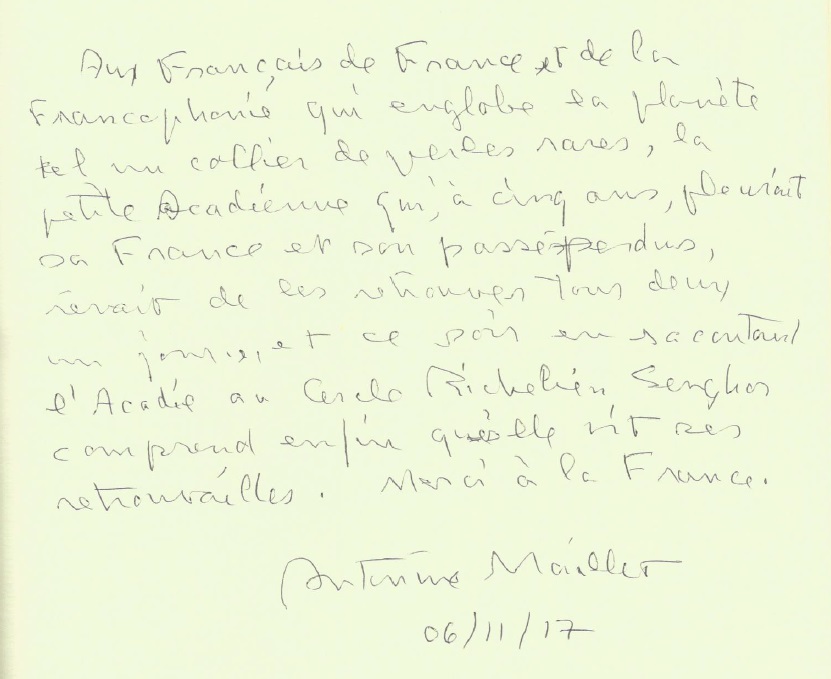 Aux Français de France et de la
Francophonie qui englobe la planète
tel un collier de perles rares, la
petite Acadienne qui, à cinq ans, pleurait
sa France et son passé perdus,
rêvait de les retrouver tous deux
un jour, et ce soir en racontant
l'Acadie au Cercle Richelieu Senghor
comprend enfin qu'elle vit ses
retrouvailles. Merci à la France.
Antonine Maillet
06/11/17